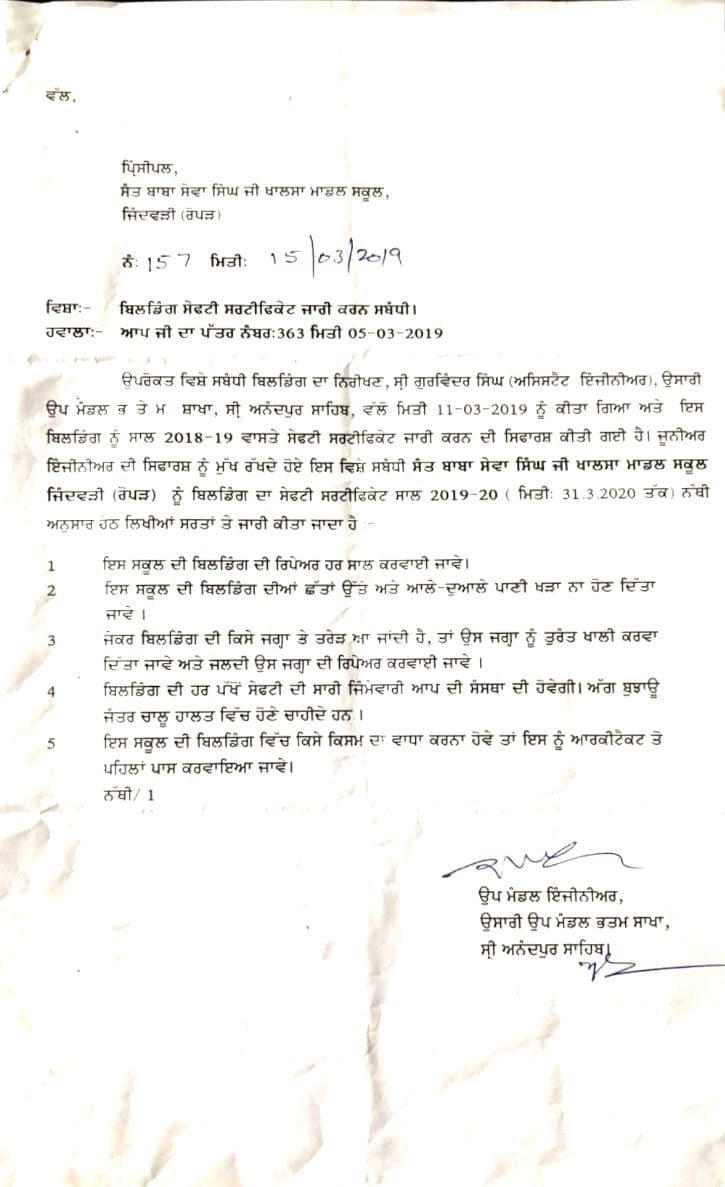 ਵੱਲ,
ਪ੍ਰਿੰਸੀਪਲ,
ਸੰਤ ਬਾਬਾ ਸੇਵਾ ਸਿੰਘ ਜੀ ਖਾਲਸਾ ਮਾਡਲ ਸਕੂਲ,
ਜਿੰਦਵੜੀ (ਰੋਪੜ)
ਨੰ: 157 ਮਿਤੀ: 15/03/2019
ਵਿਸ਼ਾ:- ਬਿਲਡਿੰਗ ਸੇਫਟੀ ਸਰਟੀਫਿਕੇਟ ਜਾਰੀ ਕਰਨ ਸਬੰਧੀ।
ਹਵਾਲਾ:- ਆਪ ਜੀ ਦਾ ਪੱਤਰ ਨੰਬਰ:363 ਮਿਤੀ 05-03-2019
ਉਪਰੋਕਤ ਵਿਸ਼ੇ ਸਬੰਧੀ ਬਿਲਡਿੰਗ ਦਾ ਨਿਰੀਖਣ, ਸ੍ਰੀ ਗੁਰਵਿੰਦਰ ਸਿੰਘ (ਅਸਿਸਟੈਟ ਇੰਜੀਨੀਅਰ), ਉਸਾਰੀ
ਉਪ ਮੰਡਲ ਭ ਤੇ ਮ ਸ਼ਾਖਾ, ਸ੍ਰੀ ਅਨੰਦਪੁਰ ਸਾਹਿਬ, ਵੱਲੋ ਮਿਤੀ 11-03-2019 ਨੂੰ ਕੀਤਾ ਗਿਆ ਅਤੇ ਇਸ
ਬਿਲਡਿੰਗ ਨੂੰ ਸਾਲ 2018-19 ਵਾਸਤੇ ਸੇਫਟੀ ਸਰਟੀਫਿਕੇਟ ਜਾਰੀ ਕਰਨ ਦੀ ਸਿਫਾਰਸ਼ ਕੀਤੀ ਗਈ ਹੈ। ਜੂਨੀਅਰ
ਇੰਜੀਨੀਅਰ ਦੀ ਸਿਫਾਰਸ਼ ਨੂੰ ਮੁੱਖ ਰੱਖਦੇ ਹੋਏ ਇਸ ਵਿਸ਼ੇ ਸਬੰਧੀ ਸੰਤ ਬਾਬਾ ਸੇਵਾ ਸਿੰਘ ਜੀ ਖਾਲਸਾ ਮਾਡਲ ਸਕੂਲ
ਜਿੰਦਵੜੀ (ਰੋਪੜ) ਨੂੰ ਬਿਲਡਿੰਗ ਦਾ ਸੇਫਟੀ ਸਰਟੀਫਿਕੇਟ ਸਾਲ 2019-20 ( ਮਿਤੀ: 31.3.2020 ਤੱਕ) ਨੱਥੀ
ਅਨੁਸਾਰ ਹੇਠ ਲਿਖੀਆਂ ਸਰਤਾਂ ਤੇ ਜਾਰੀ ਕੀਤਾ ਜਾਦਾ ਹੈ :-
1 ਇਸ ਸਕੂਲ ਦੀ ਬਿਲਡਿੰਗ ਦੀ ਰਿਪੇਅਰ ਹਰ ਸਾਲ ਕਰਵਾਈ ਜਾਵੇ।
2 ਇਸ ਸਕੂਲ ਦੀ ਬਿਲਡਿੰਗ ਦੀਆਂ ਛੱਤਾਂ ਉੱਤੇ ਅਤੇ ਆਲੇ-ਦੁਆਲੇ ਪਾਣੀ ਖੜਾ ਨਾ ਹੋਣ ਦਿੱਤਾ
ਜਾਵੇ ।
3 ਜੇਕਰ ਬਿਲਡਿੰਗ ਦੀ ਕਿਸੇ ਜਗ੍ਹਾ ਤੇ ਤਰੇੜ ਆ ਜਾਂਦੀ ਹੈ, ਤਾਂ ਉਸ ਜਗ੍ਹਾ ਨੂੰ ਤੁਰੰਤ ਖਾਲੀ ਕਰਵਾ
ਦਿੱਤਾ ਜਾਵੇ ਅਤੇ ਜਲਦੀ ਉਸ ਜਗ੍ਹਾ ਦੀ ਰਿਪੇਅਰ ਕਰਵਾਈ ਜਾਵੇ ।
4 ਬਿਲਡਿੰਗ ਦੀ ਹਰ ਪੱਖੋਂ ਸੇਫਟੀ ਦੀ ਸਾਰੀ ਜਿੰਮੇਵਾਰੀ ਆਪ ਦੀ ਸੰਸਥਾ ਦੀ ਹੋਵੇਗੀ। ਅੱਗ ਬੁਝਾਊ
ਜੰਤਰ ਚਾਲੂ ਹਾਲਤ ਵਿੱਚ ਹੋਣੇ ਚਾਹੀਦੇ ਹਨ ।
5 ਇਸ ਸਕੂਲ ਦੀ ਬਿਲਡਿੰਗ ਵਿੱਚ ਕਿਸੇ ਕਿਸਮ ਦਾ ਵਾਧਾ ਕਰਨਾ ਹੋਵੇ ਤਾਂ ਇਸ ਨੂੰ ਆਰਕੀਟੈਕਟ ਤੋ
ਪਹਿਲਾਂ ਪਾਸ ਕਰਵਾਇਆ ਜਾਵੇ।
ਨੱਥੀ/ 1
ਉਪ ਮੰਡਲ ਇੰਜੀਨੀਅਰ,
ਉਸਾਰੀ ਉਪ ਮੰਡਲ ਭਤਮ ਸਾਖਾ,
ਸ੍ਰੀ ਅਨੰਦਪੁਰ ਸਾਹਿਬ।